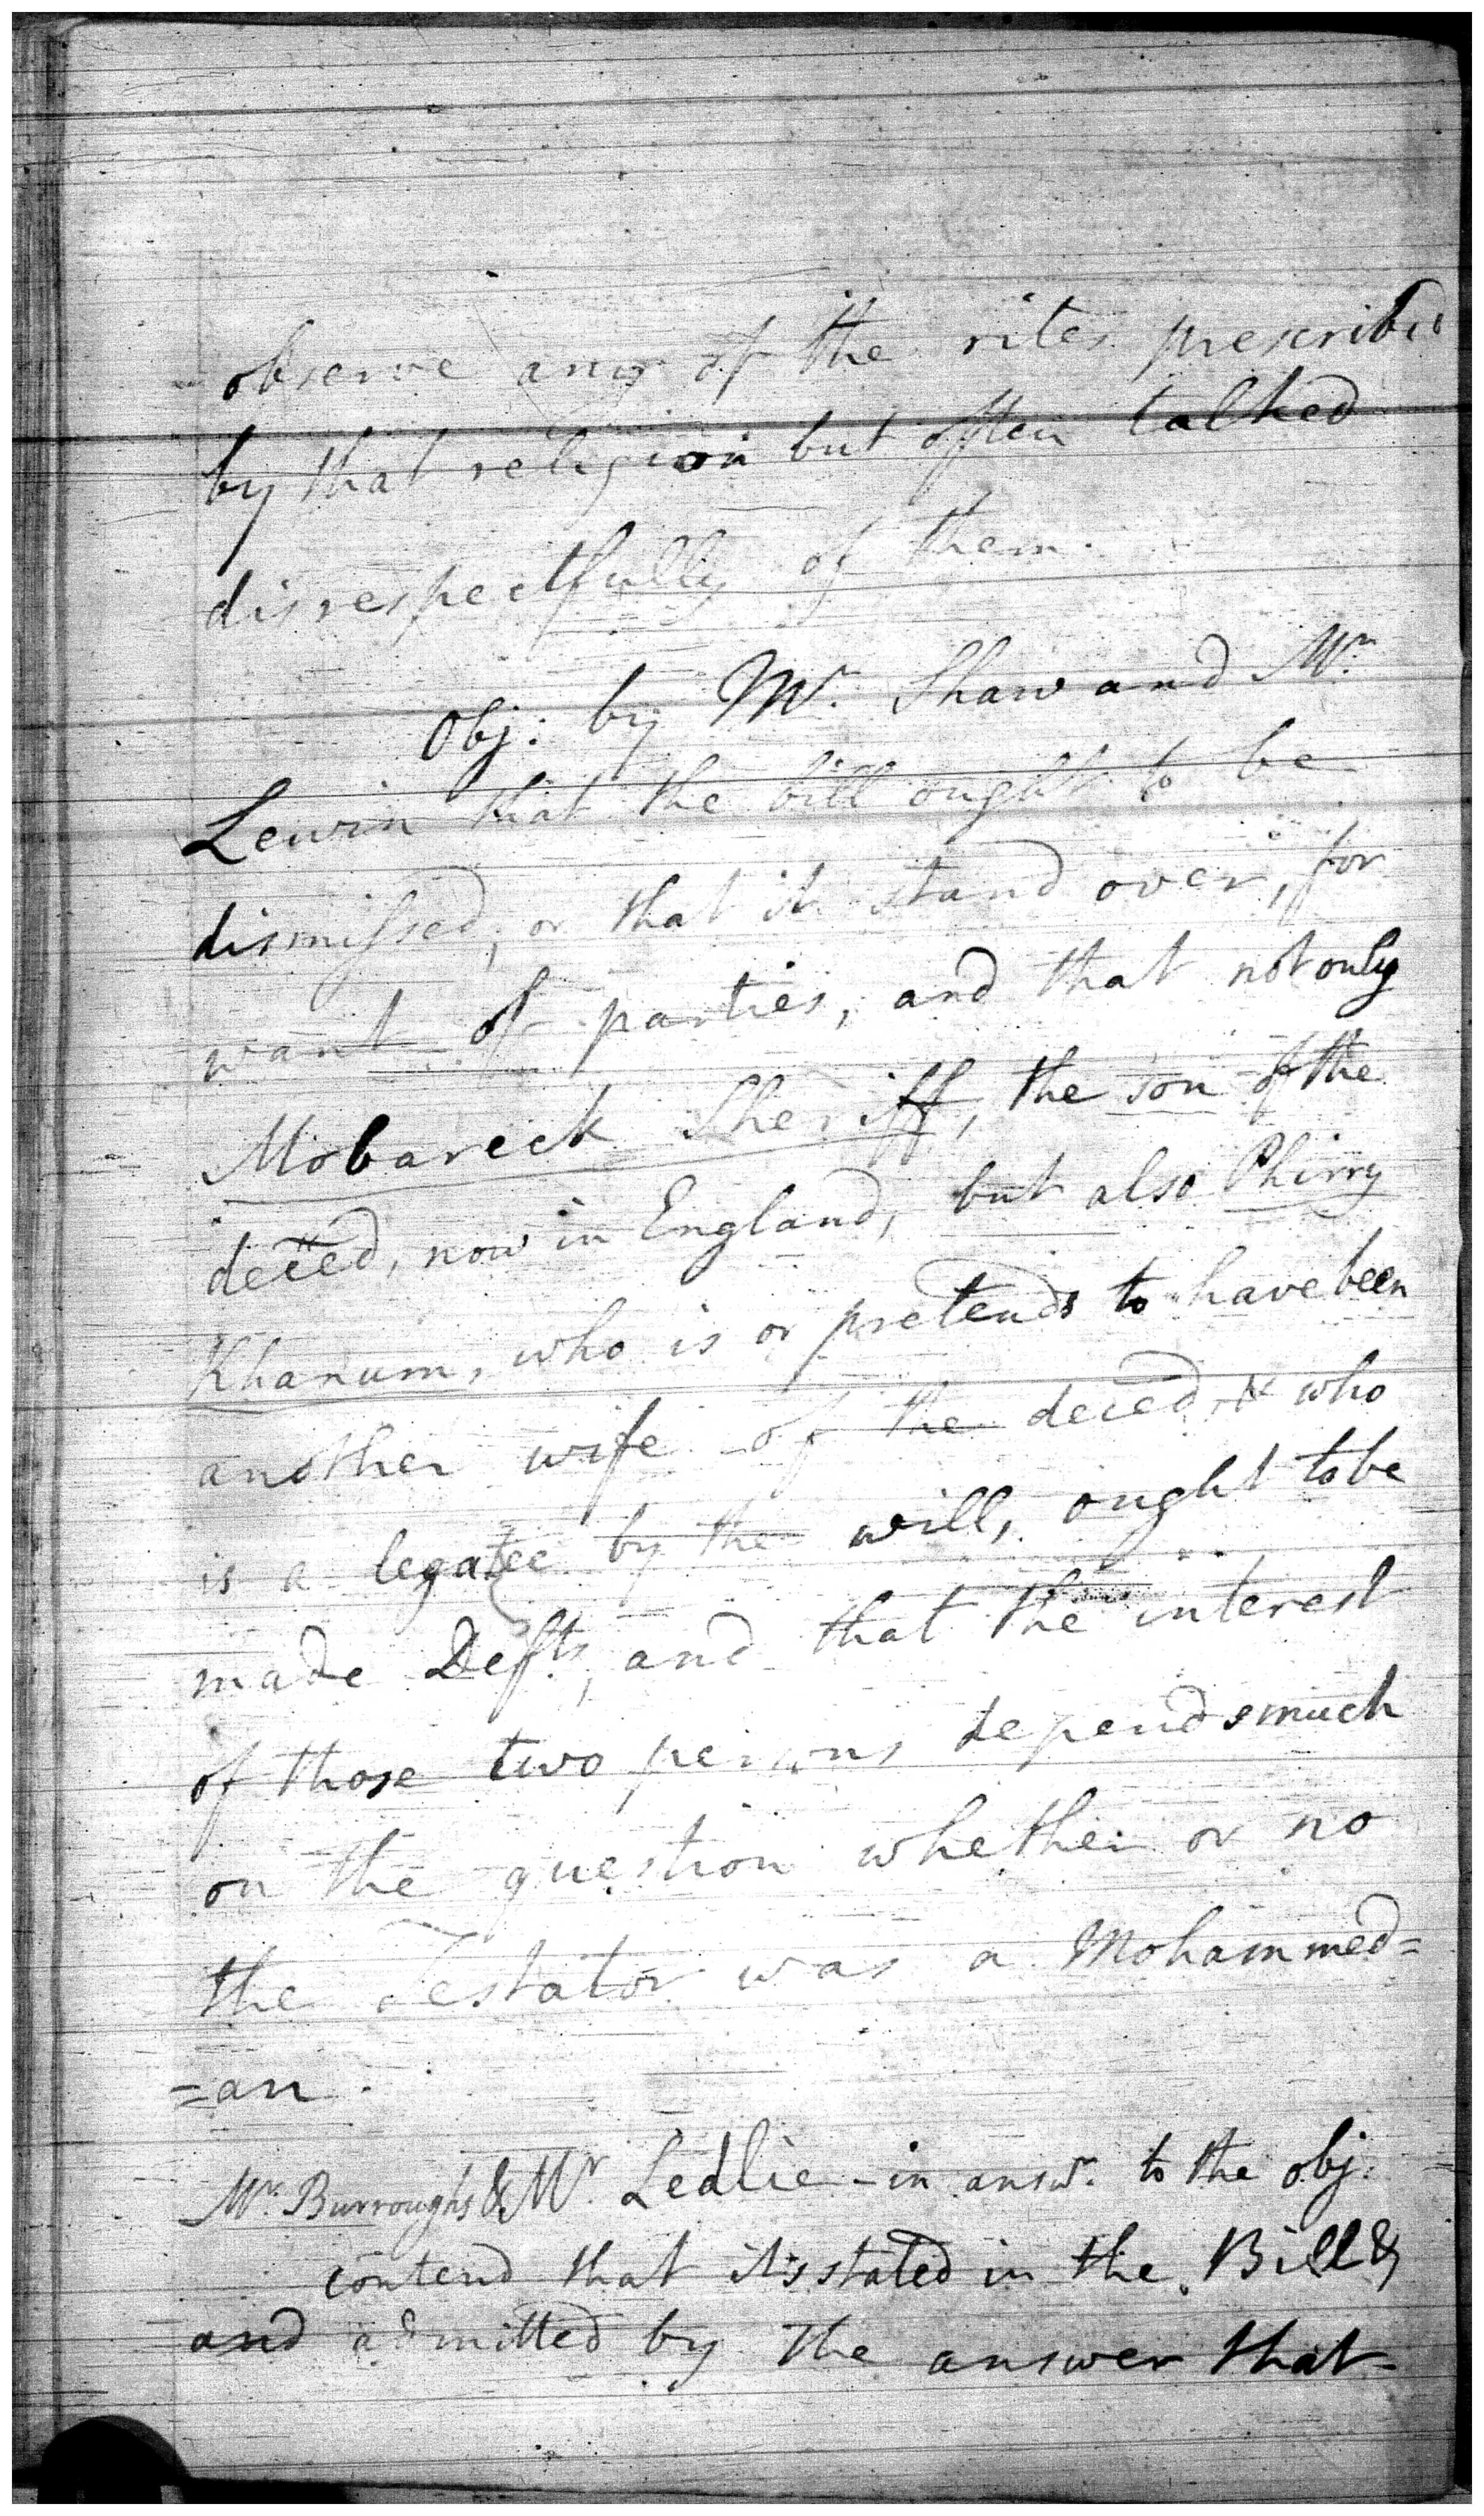 observe any of the rites prescribed
by that religion but often talked
disrespectfully of them.
Obj: by Mr. Shaw and Mr.
Lewin that the bill ought to be
dismissed, or that it stand over, for
want of parties, and that not only
Mobareck Sheriff, the son of the
deced, now in England, but also Phirry
Khanum, who is or pretends to have been
another wife of the deced & who
is a legatee by the will, ought to be
made Defts, and that the interest
of those two persons depends much
on the question whether or no
the Testator was a Mohammed=
=an.
Mr. Burroughs & Mr. Ledlie - in answr. to the obj.
contend that it's stated in the Bill &
and admitted by the answer that